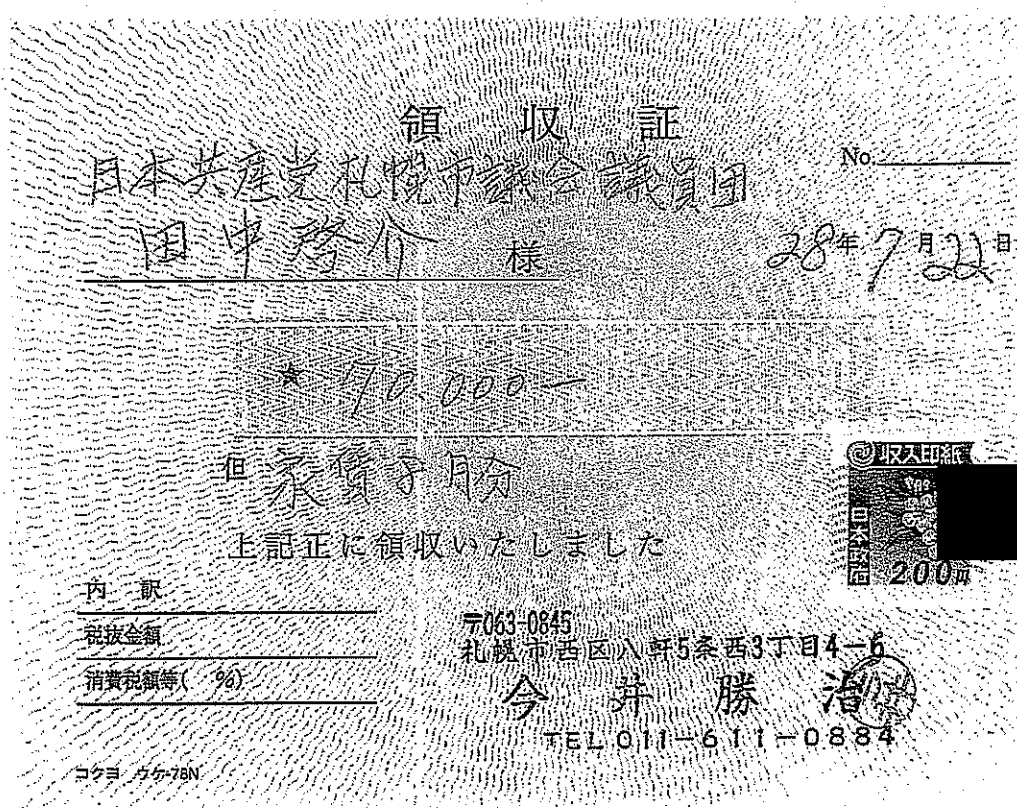 領 収 証
日本共産党札幌市議会議員団
No.
田中啓介 様
28年7月22日
★
但 家賃 月分
上記正に領収いたしました
収入印紙
日本政府
200円
内 訳
税抜金額
消費税額等( %)
〒063-0845
札幌市西区八軒5条西3丁目4-6
今 井 勝 治
TEL 011-611-0884
コクヨ ウケ-78N